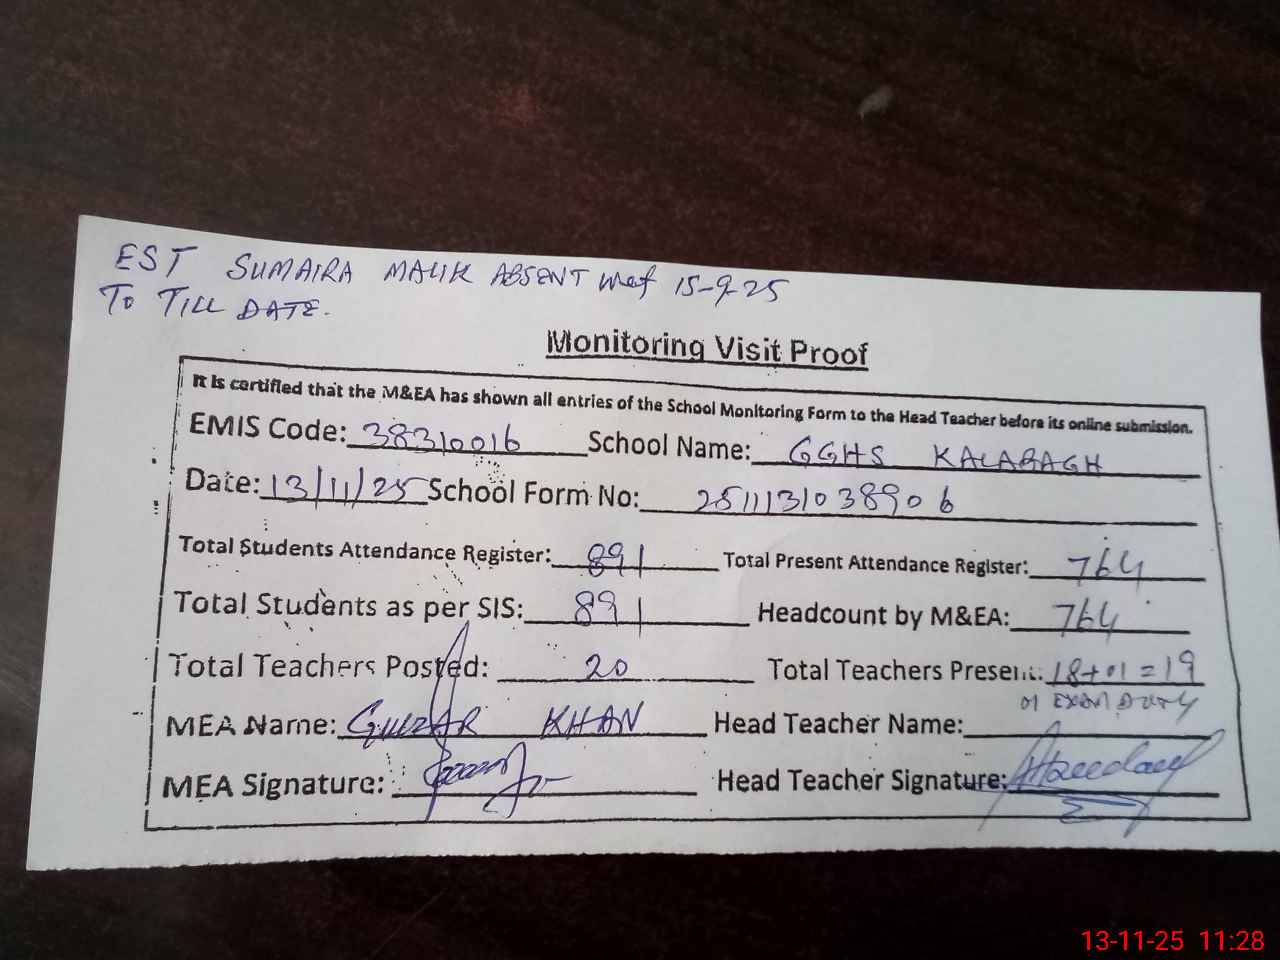 EST SUMAIRA MALIK ABSENT wef 15-9-25
To TILL DATE.
Monitoring Visit Proof
It is certified that the M&EA has shown all entries of the School Monitoring Form to the Head Teacher before its online submission.
EMIS Code: 38310016 School Name: GGHS KALABAGH
Date: 13/11/25 School Form No: 251113103890 6
Total Students Attendance Register: 891 Total Present Attendance Register: 764
Total Students as per SIS: 891 Headcount by M&EA: 764
Total Teachers Posted: 20 Total Teachers Present: 18+01=19
01 EXAM DUTY
MEA Name: GULZAR KHAN Head Teacher Name:
MEA Signature: Head Teacher Signature:
13-11-25 11:28